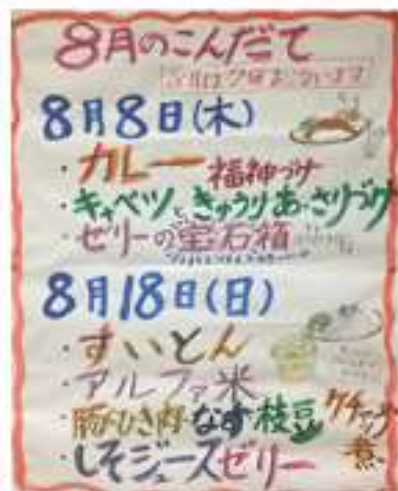 8月のこんだて
8月8日(木)
・カレー 福神づけ
・キャベツときゅうりあっさりづけ
・ゼリーの宝石箱
8月18日(日)
・すいとん
・アルファ米
・豚ひき肉・なす枝豆ケチャップ煮
・しそジュースゼリー